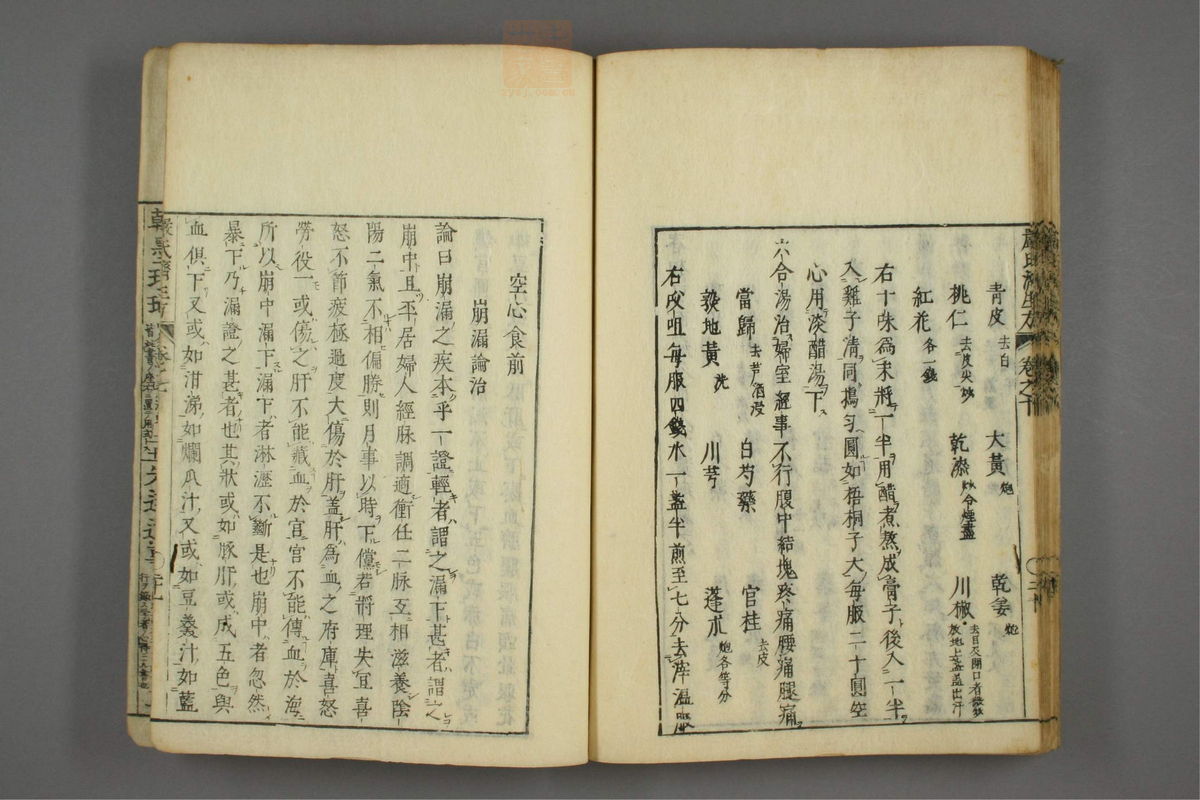 青皮去白　大黃炮　乾姜炮
桃仁去皮尖炒　乾漆炒令煙盡　川椒去目及閉口者微炒放地上盞蓋出汗
紅花各一錢
右十味爲末將一半用醋煮熬成膏子後入一半
入雞子清同搗勻圓如梧桐子大每服二十圓空
心用淡醋湯下
六合湯治婦室經事不行腹中結塊疼痛腰痛腿痛
當歸去芦酒浸　白芍藥　官桂去皮
熟地黃洗　川芎　蓬朮炮各等分
右㕮咀每服四錢水一盞半煎至七分去滓温服
空心食前
崩漏論治
論曰崩漏之疾本乎一證輕者謂之漏下甚者謂之
崩中且平居婦人經脉調適衝任二脉互相滋養陰
陽二氣不相偏勝則月事以時下儻若將理失宜喜
怒不節疲極過度大傷於肝蓋肝為血之府庫喜怒
勞役一或傷之肝不能藏血於宮宮不能傳血於海
所以崩中漏下漏下者淋瀝不斷是也崩中者忽然
暴下乃漏證之甚者也其狀或如豚肝或成五色與
血俱下又或如泔涕如爛瓜汁又或如豆羹汁如藍
嚴氏濟生方　卷之十